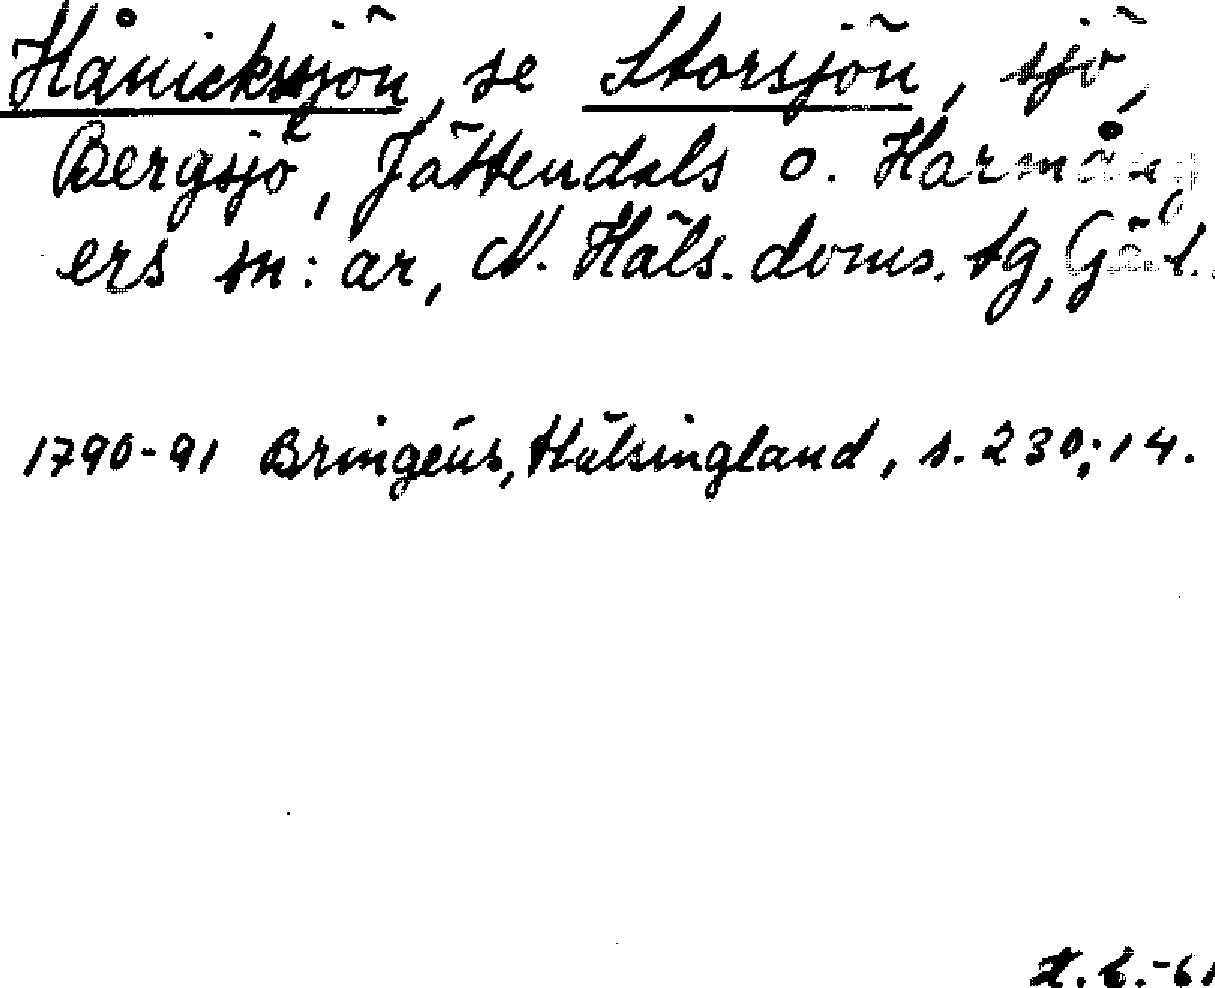 Hånickssjön, se Storsjön, sjö,
Bergsjö, Jättendals o. Harmång
ers sn:ar, N. Häls. doms. tg, Gävl.
1790-91 Bringéus, Hälsingland, s. 230; 14.